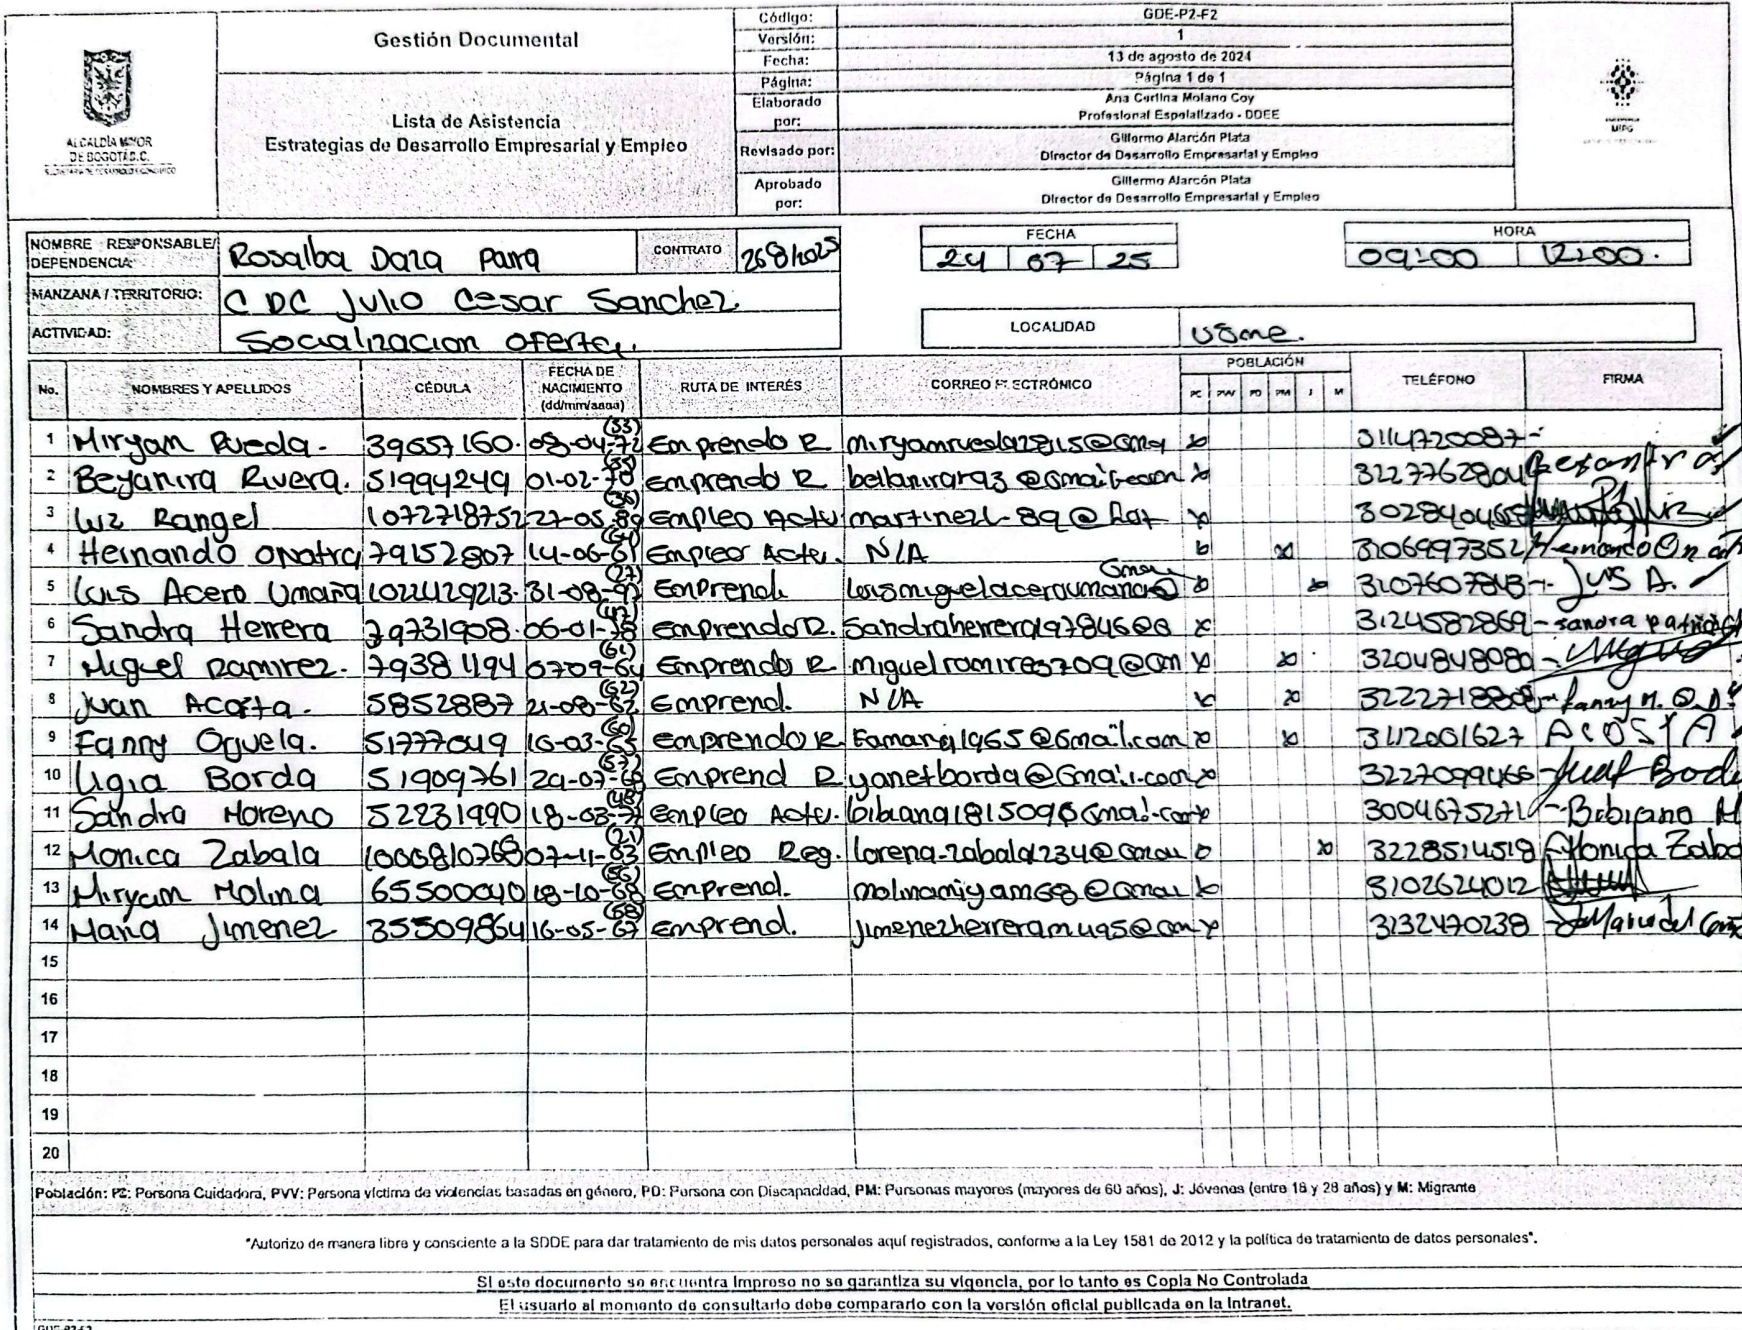 ALCALDÍA MAYOR
DE BOGOTÁ D.C.
Gestión Documental
Lista de Asistencia
Estrategias de Desarrollo Empresarial y Empleo
Código: GDE-P2-F2
Versión: 1
Fecha: 13 de agosto de 2024
Página: Página 1 de 1
Elaborado por: Ana Carlina Molano Coy
Profesional Espelalizado - DDEE
Revisado por: Gillermo Alarcón Plata
Director de Desarrollo Empresarial y Empleo
Aprobado por: Gillermo Alarcón Plata
Director de Desarrollo Empresarial y Empleo
MIPG
NOMBRE RESPONSABLE/DEPENDENCIA: Rosalba Daza Parra CONTRATO 268/2025
FECHA 24 07 25
HORA 09:00 12:00.
MANZANA / TERRITORIO: CDC Julio Cesar Sanchez.
ACTIVIDAD: Socializacion oferta.
LOCALIDAD Usme.
No. NOMBRES Y APELLIDOS CÉDULA FECHA DE NACIMIENTO (dd/mm/aaaa) RUTA DE INTERÉS CORREO ELECTRÓNICO POBLACIÓN PC PVV PD PM J M TELÉFONO FIRMA
1 Miryam Rueda. 39657160. 08-04-72 (53) Emprendo R miryamrueda2815@Gma x 3114720087-
2 Beyanira Rivera. 51994249 01-02-70 (55) emprendo R bellanirar93@Gmail.com x 3227762804
3 Luz Rangel 1072718752 27-05-89 (36) Empleo Actu martinezl-89@hot x 3028404658
4 Hernando Onatra 79152807 14-06-61 Empleo Actu. N/A x x 3106997352 Hernando Onat
5 Luis Acero Umaña 1022429213. 31-08-97 (27) Emprend. luismiguelaceroumana@Gmai x x 3107607843-. Luis A.
6 Sandra Herrera 39731908. 06-01-78 (47) Emprendo R. Sandraherrera197846@G x 3124582869- sandra patricia
7 Miguel Ramirez. 79381194 0709-64 (61) Emprendo R miguelramires709@Gm x x 3204848080-
8 Juan Acosta. 5852887 21-08-62 (62) Emprend. N/A x x 3222718808- fanny M. O.
9 Fanny Oquela. 51777049 16-03-65 (60) emprendo R. Famana1965@Gmail.com x x 3112001627 ACOSTA
10 Ligia Borda 51909761 29-07-68 (57) Emprend R yanetborda@Gmail.com x 3227099466-
11 Sandra Moreno 52231990 18-03-77 (48) Empleo Actu. bibiana181509@Gmail.com x 3004675271- Bibiana M
12 Monica Zabala 1000810768 07-11-03 (21) Empleo Reg. lorena-zabala1234@Gmai x x 3228514518 Monica Zaba
13 Miryam Molina 65500040 18-10-68 (56) Emprend. molinamiyam68@Gmai x 3102624012
14 Maria Jimenez 35509864 16-05-67 (58) Emprend. jimenezherreramu95@Gm x 3132470238 -Maria del Carm
15
16
17
18
19
20
Población: PC: Persona Cuidadora, PVV: Persona víctima de violencias basadas en género, PD: Persona con Discapacidad, PM: Pursonas mayores (mayores de 60 años), J: Jóvenes (entre 18 y 28 años) y M: Migrante
"Autorizo de manera libre y consciente a la SDDE para dar tratamiento de mis datos personales aquí registrados, conforme a la Ley 1581 de 2012 y la política de tratamiento de datos personales".
Si este documento se encuentra Impreso no se garantiza su vigencia, por lo tanto es Copia No Controlada
El usuario al momento de consultarlo debe compararlo con la versión oficial publicada en la Intranet.